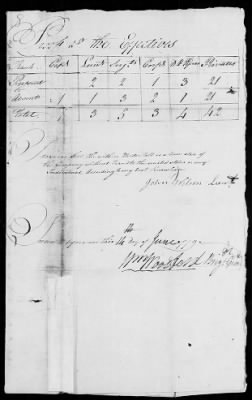 Proof of the Effectives
Rank Capt Lieuts Serjts Corpls D & Fifers Privates
Present 2 2 1 3 21
Absent 1 1 3 2 1 21
Total 1 3 5 3 4 42
the within Muster Roll is a true state of
the Company without to the united states or any
Individual according to my best knowledge
John Lieut
Sworn before me this 14 day of June 177
Wm Woodford Brigr Genl